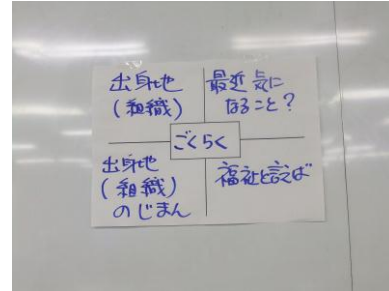 出身地
(組織)
最近気に
なること?
ごくらく
出身地
(組織)
のじまん
福祉と言えば